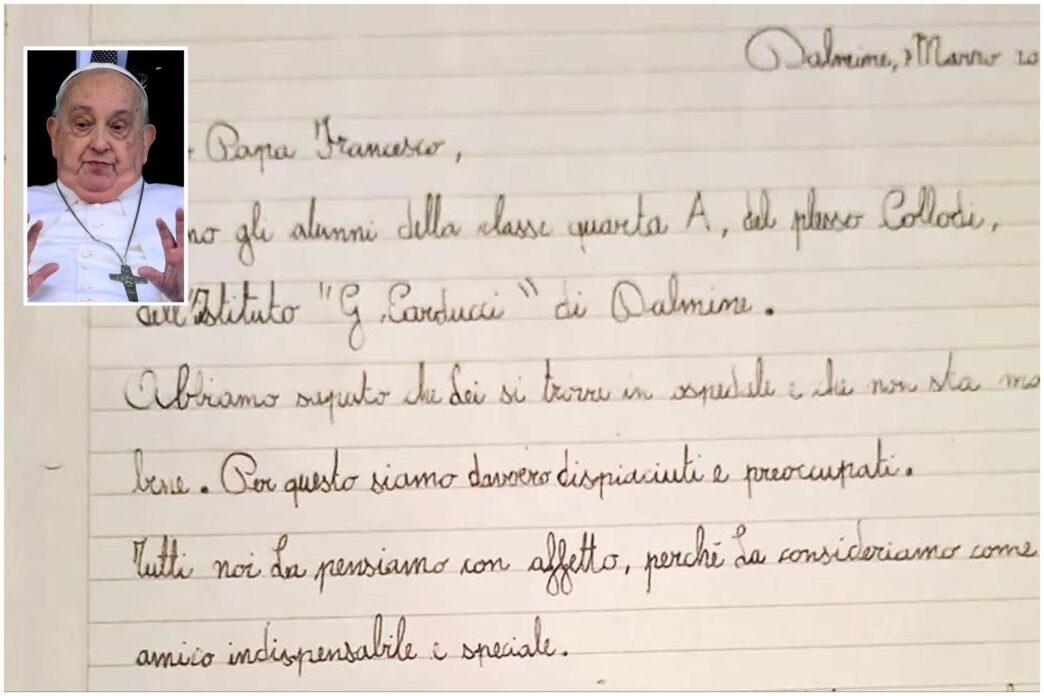 Dalmine, 7 Marzo 20
Papa Francesco,
no gli alunni della classe quarta A, del plesso Collodi,
dell'Istituto "G. Carducci" di Dalmine.
Abbiamo saputo che Lei si trova in ospedale e che non sta mo
bene. Per questo siamo davvero dispiaciuti e preoccupati.
Tutti noi La pensiamo con affetto, perché La consideriamo come
amico indispensabile e speciale.